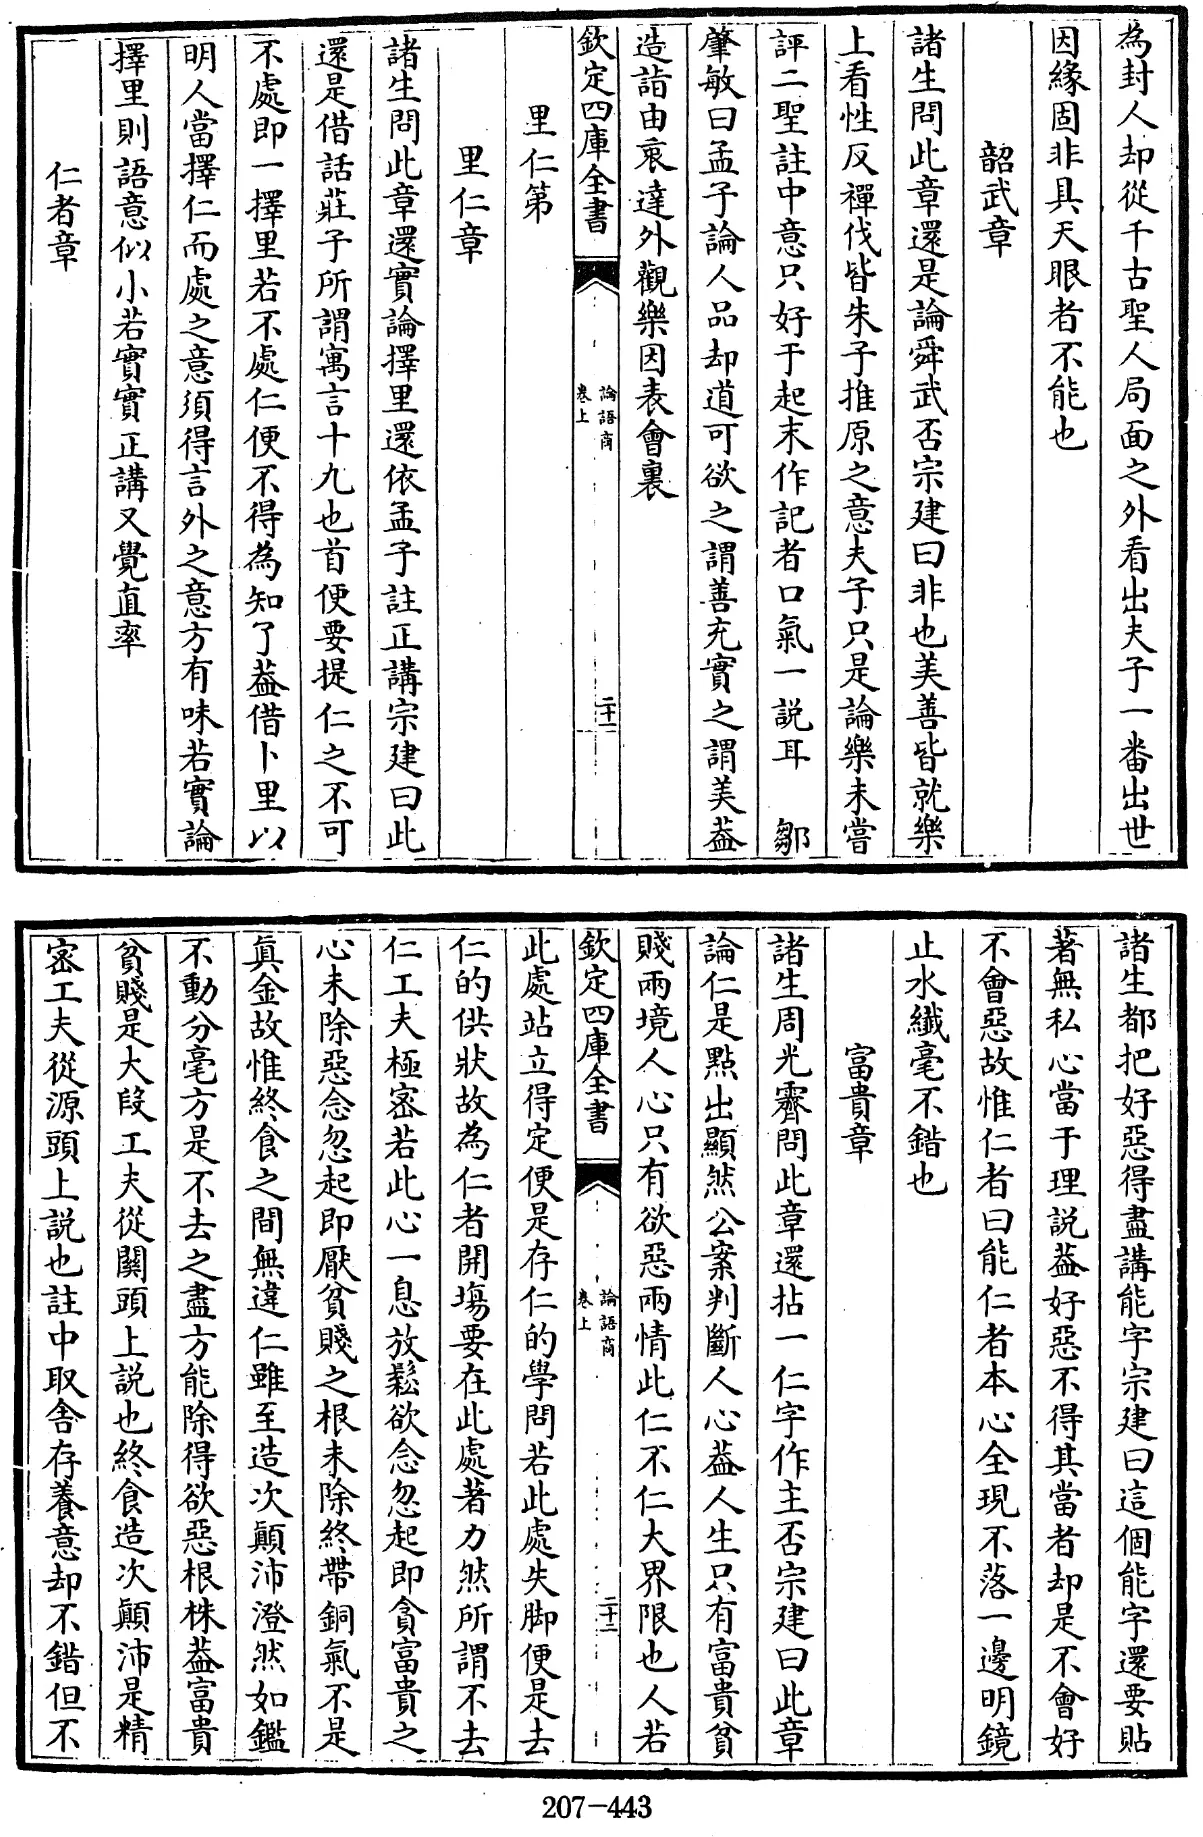 為封人却從千古聖人局面之外看出夫子一番出世
因緣固非具天眼者不能也
韶武章
諸生問此章還是論舜武否宗建曰非也美善皆就樂
上看性反禪伐皆朱子推原之意夫子只是論樂未嘗
評二聖註中意只好于起末作記者口氣一説耳　鄒
肇敏曰孟子論人品却道可欲之謂善充實之謂美葢
造詣由衷達外觀樂因表會裏
欽定四庫全書
論語商
卷上
二十一
里仁第
里仁章
諸生問此章還實論擇里還依孟子註正講宗建曰此
還是借話莊子所謂寓言十九也首便要提仁之不可
不處即一擇里若不處仁便不得為知了葢借卜里以
明人當擇仁而處之意須得言外之意方有味若實論
擇里則語意似小若實實正講又覺直率
仁者章
諸生都把好惡得盡講能字宗建曰這個能字還要貼
著無私心當于理説葢好惡不得其當者却是不會好
不會惡故惟仁者曰能仁者本心全現不落一邊明鏡
止水纖毫不錯也
富貴章
諸生周光霽問此章還拈一仁字作主否宗建曰此章
論仁是點出顯然公案判斷人心葢人生只有富貴貧
賤兩境人心只有欲惡兩情此仁不仁大界限也人若
欽定四庫全書
論語商
卷上
二十二
此處站立得定便是存仁的學問若此處失脚便是去
仁的供狀故為仁者開場要在此處著力然所謂不去
仁工夫極宻若此心一息放鬆欲念忽起即貪富貴之
心未除惡念忽起即厭貧賤之根未除終帶銅氣不是
眞金故惟終食之間無違仁雖至造次顛沛澄然如鑑
不動分毫方是不去之盡方能除得欲惡根株葢富貴
貧賤是大段工夫從關頭上説也終食造次顛沛是精
宻工夫從源頭上説也註中取舍存養意却不錯但不
207-443